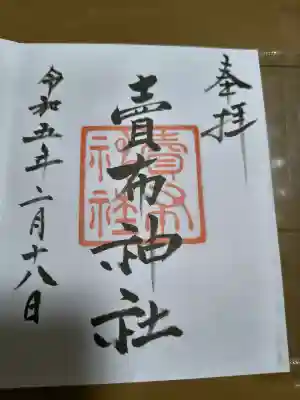 奉拝
賣布神社
賣布
神社
令和五年二月十八日